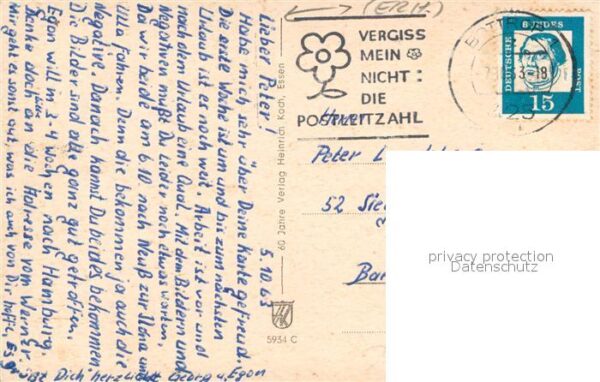 5.10.63
Lieber Peter!
Habe mich sehr über Deine Karte gefreut.
Die erste Woche ist um und bis zum nächsten
Urlaub ist er noch weit. Arbeit ist vor und
nach dem Urlaub eine Qual. Mit den Bildern und
Negativen mußt Du leider noch etwas warten,
Da wir beide am 6.10. nach Neuß zur Ilona und
Ulla fahren. Denn die bekommen ja auch die
Negative. Danach kannst Du beides bekommen.
Die Bilder sind alle ganz gut getroffen.
Egon will in 3-4 Wochen nach Hamburg.
Denke doch bitte an die Adresse vom Werner.
Mir geht es sonst gut, was ich auch von Dir hoffe. Es
grüßt Dich herzlichst Georg u. Egon
60 Jahre Verlag Heinrich Koch, Essen
HK
5934 C
(ETCH.)
VERGISS
MEIN
NICHT:
DIE
POSTLEITZAHL
BOTTR
-18
425
DEUTSCHE BUNDESPOST
15
Herrn
Peter
52 Sie
Ba
privacy protection
Datenschutz